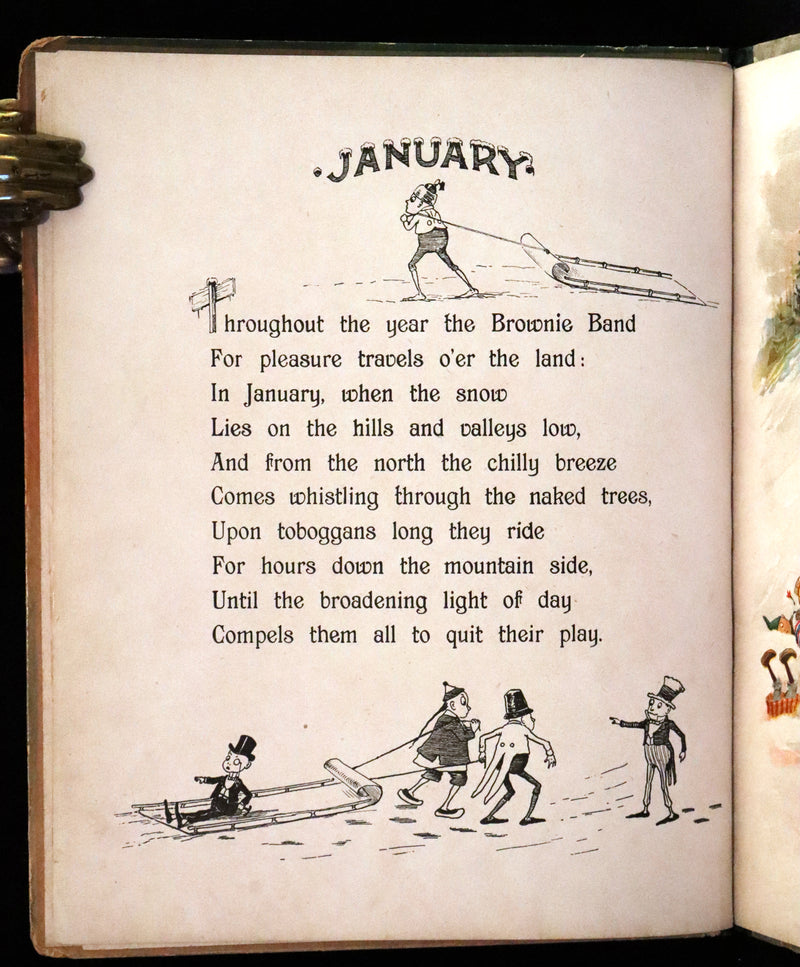 JANUARY.
Throughout the year the Brownie Band
For pleasure travels o'er the land:
In January, when the snow
Lies on the hills and valleys low,
And from the north the chilly breeze
Comes whistling through the naked trees,
Upon toboggans long they ride
For hours down the mountain side,
Until the broadening light of day
Compels them all to quit their play.